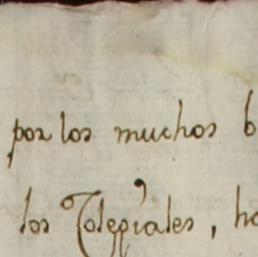 por los muchos b
los Colegiales, ha